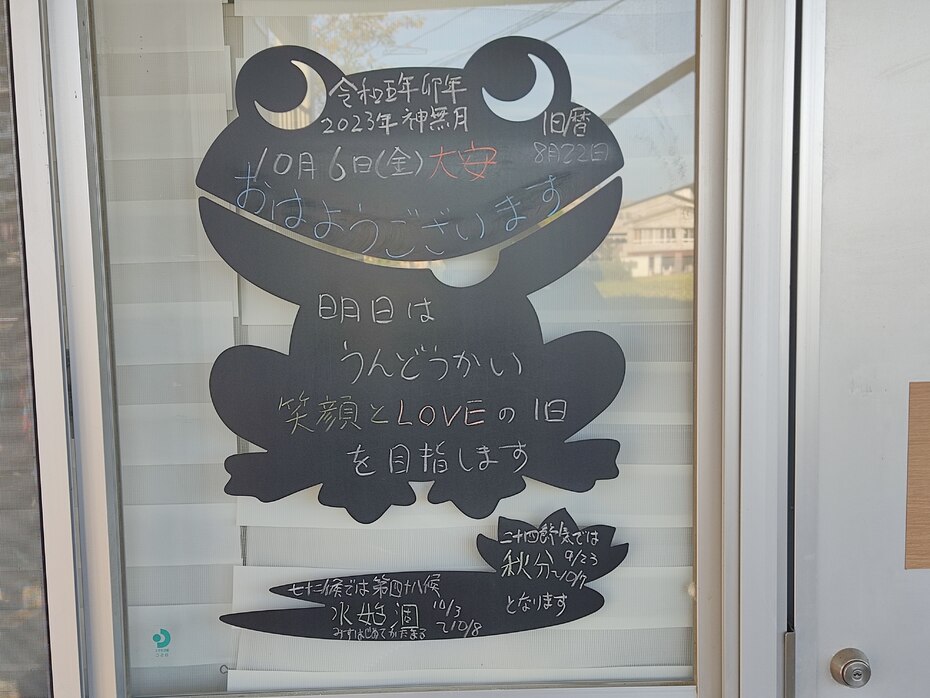 令和五年卯年
2023年神無月
旧暦
8月22日
10月6日(金)大安
おはようございます
明日は
うんどうかい
笑顔とLOVEの1日
を目指します
二十四節気では
秋分 9/23
~10/7
となります
七十二候では第四十八候
水始涸 10/3
~10/8
みずはじめてかれる